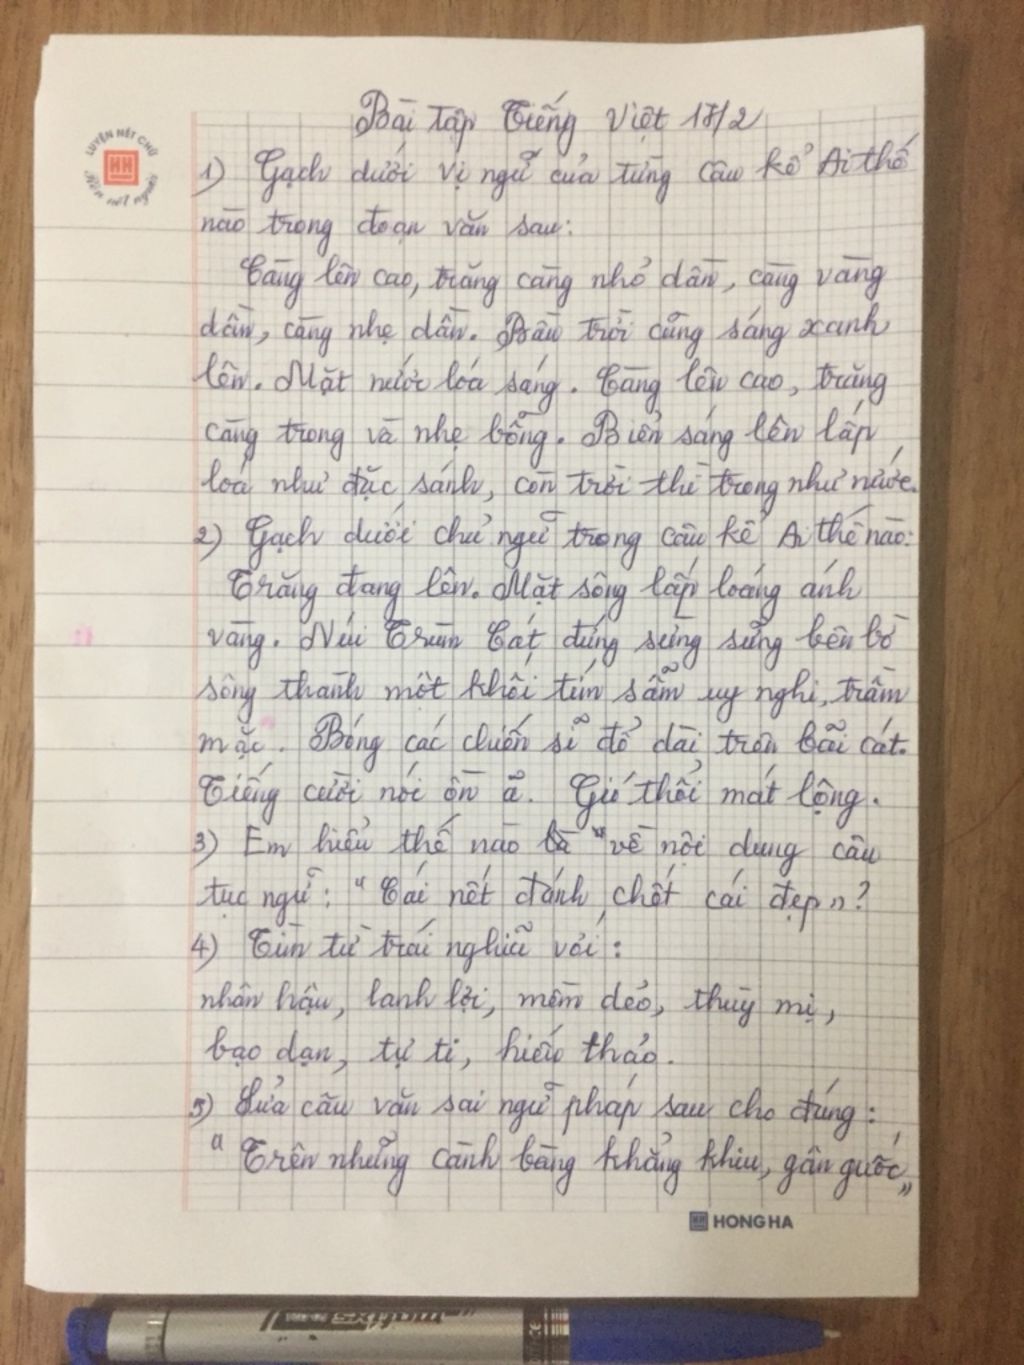 Bài tập Tiếng Việt 17/2
LUYỆN NÉT CHỮ
Rèn nết người
1) Gạch dưới vị ngữ của từng câu kể Ai thế
nào trong đoạn văn sau:
Càng lên cao, trăng càng nhỏ dần, càng vàng
dần, càng nhẹ dần. Bầu trời cũng sáng xanh
lên. Mặt nước loá sáng. Càng lên cao, trăng
càng trong và nhẹ bỗng. Biển sáng lên lấp
loá như đặc sánh, còn trời thì trong như nước.
2) Gạch dưới chủ ngữ trong câu kể Ai thế nào:
Trăng đang lên. Mặt sông lấp loáng ánh
vàng. Núi Trùm Cát đứng sừng sững bên bờ
sông thành một khối tím sẫm uy nghi, trầm
mặc. Bóng các chiến sĩ đổ dài trên bãi cát.
Tiếng cười nói ồn ã. Gió thổi mát lộng.
3) Em hiểu thế nào là "về nội dung câu
tục ngữ: "Cái nết đánh chết cái đẹp"?
4) Tìm từ trái nghĩa với:
nhân hậu, lanh lợi, mềm dẻo, thuỳ mị,
bạo dạn, tự ti, hiếu thảo.
5) Sửa câu văn sai ngữ pháp sau cho đúng:
"Trên những cành bàng khẳng khiu, gân guốc"
HH HONG HA